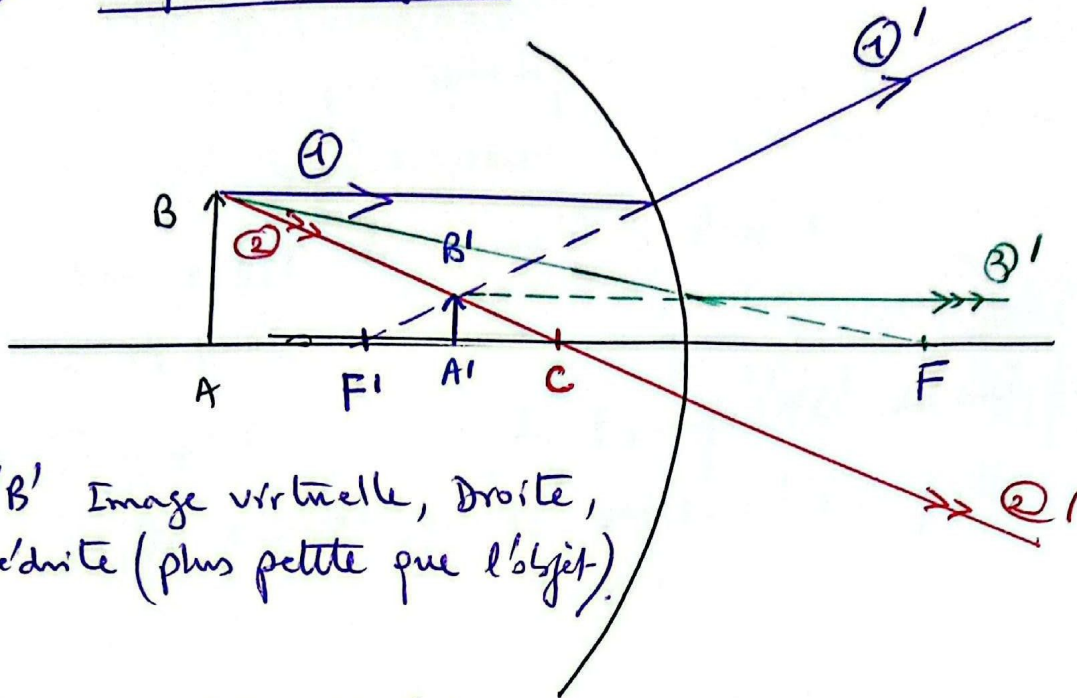 ①'
①
B
②
B'
③'
A
F'
A'
C
F
'B' Image virtuelle, Droite,
②'
éduite (plus petite que l'objet).